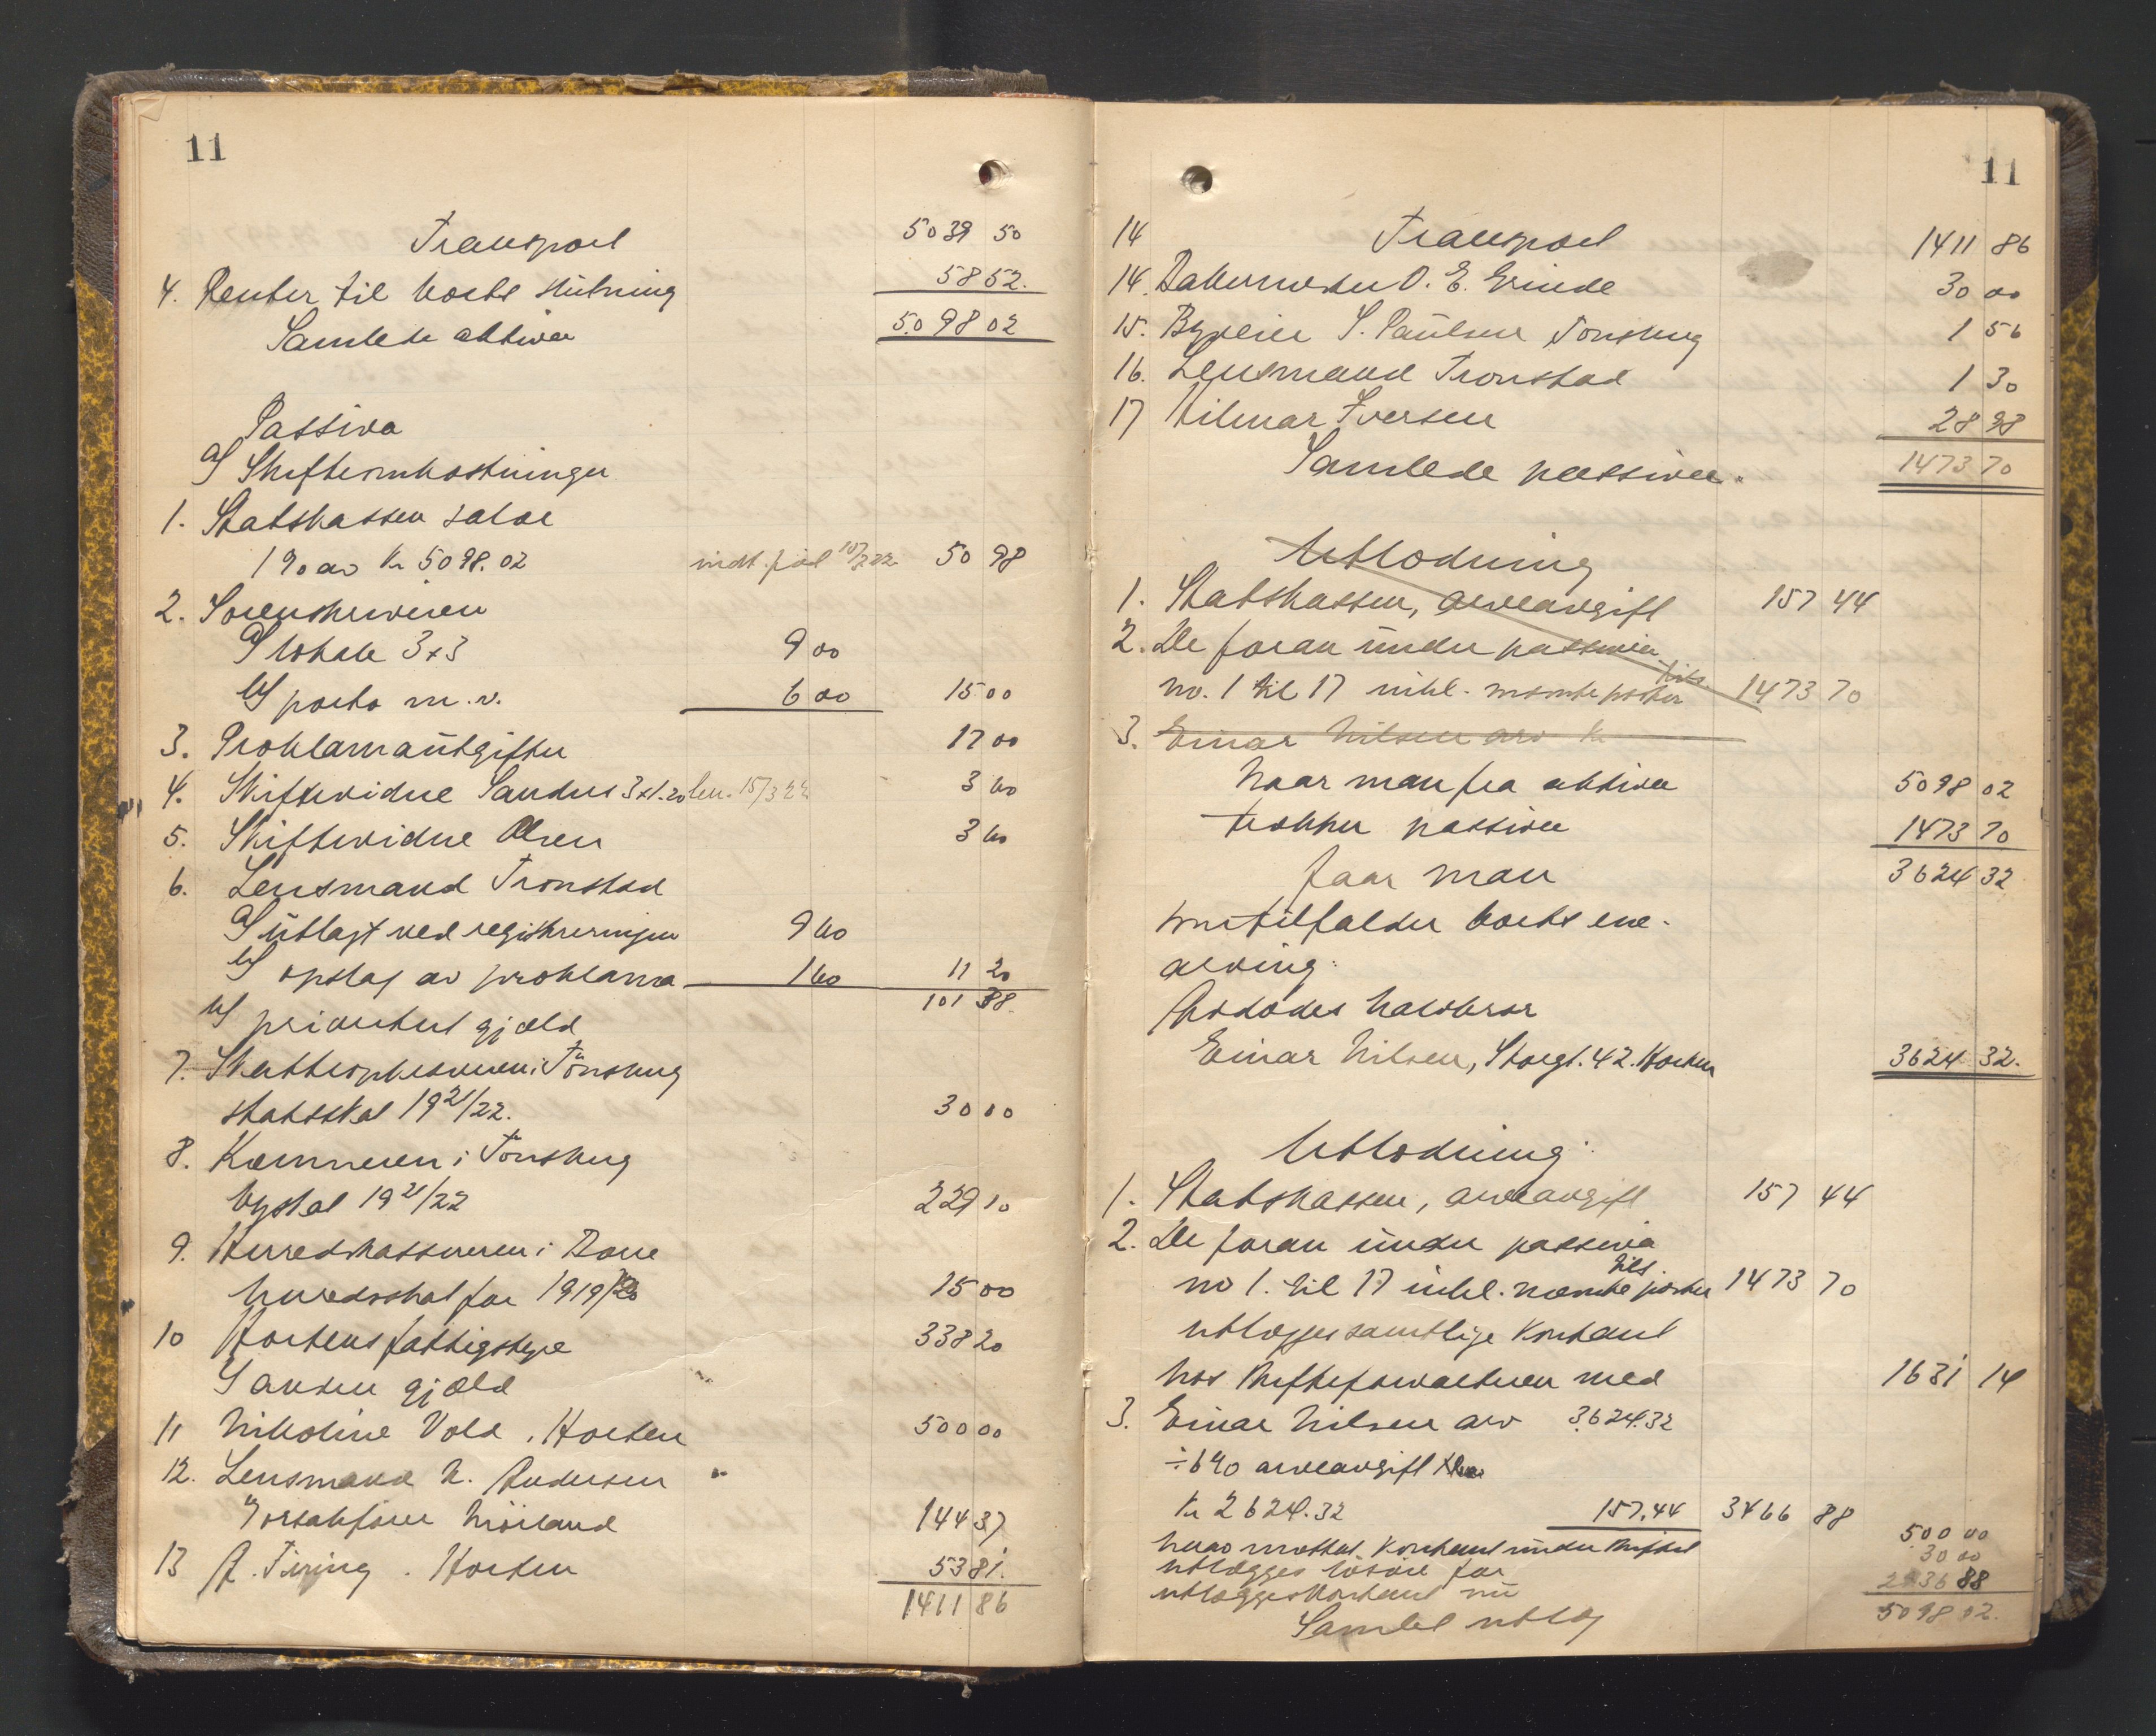 11
Transport 5039 50
4. Renter til boets slutning 58 52.
Samlede aktiva 5098 02
Passiva
a) Skifteomkostninger
1. Statskassen salær
1 % av kr 5098.02 indt. før 10/3 22 50 98
2. Sorenskriveren
a) lokale 3x3 9 00
b) porto m.v. 6 00 15 00
3. Proklamautgifter 17 00
4. Skiftevidne Sanders 3x1.20 lev. 15/3 22 3 60
5. Skiftevidne Olsen 3 60
6. Lensmand Tronstad
a) utlagt ved registreringen 9 60
b) opslag av proklama 1 60 11 20
101 38
b) prioritert gjæld
7. Skatteopkræveren i Tönsberg
statsskat 19 21/22. 30 00
8. Kæmneren i Tönsberg
byskat 19 21/22 229 10
9. Herredskassereren i Borre
herredsskat for 1919/20 15 00
10 Hortens fattigstyre 338 20
c) anden gjæld
11 Nikoline Vold, Horten 500 00
12. Lensmand N. Andersen
for 144 37
13 A. Tiring. Horten 53 81.
1411 86
11
14 Transport 1411 86
14. O. E. Grinde 30 00
15. S. Paulsen Tønsberg 1 56
16. Lensmand Tronstad 1 30
17 Hilmar Iversen 28 98
Samlede passiva. 1473 70
Utlodning
1. Statskassen, arveavgift 157 44
2. De foran under passiva
no. 1 til 17 inkl. nævnte poster tils. 1473 70
3. Einar Nilsen arv kr
Naar man fra aktiva 5098 02
trækker passiva 1473 70
faar man 3624 32
som tilfalder boets ene-
arving:
Avdødes halvbror
Einar Nilsen, Storgt. 42. Horten 3624 32.
Utlodning:
1. Statskassen, arveavgift 157 44
2. De foran under passiva
no 1. til 17 inkl. nævnte poster tils. 1473 70
utlægges samtlige kontant
hos skifteforvalteren med 1631 14
3. Einar Nilsen arv 3624.32
÷ 6 % arveavgift
kr 2624.32 157.44 3466 88
herav mottat kontant under skiftet 500 00
utlægges løsøre for 30 00
utlægges kontant nu 2936 88
Samlet utlæg 5098 02.